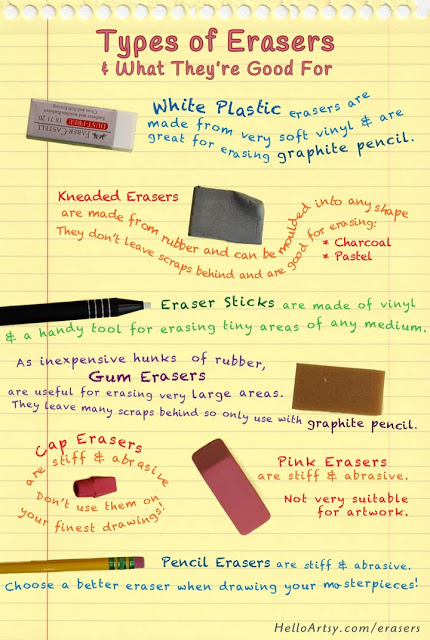 Types of Erasers
& What They're Good For
White Plastic erasers are
made from very soft vinyl & are
great for erasing graphite pencil.
FABER-CASTELL
DUST-FREE
18 71 20
Kneaded Erasers
are made from rubber and can be moulded into any shape
They don't leave scraps behind and are good for erasing:
* Charcoal
* Pastel
Eraser Sticks are made of vinyl
& a handy tool for erasing tiny areas of any medium.
As inexpensive hunks of rubber,
Gum Erasers
are useful for erasing very large areas.
They leave many scraps behind so only use with graphite pencil.
Cap Erasers
are stiff & abrasive
Don't use them on
your finest drawings!
Pink Erasers
are stiff & abrasive.
Not very suitable
for artwork.
Pencil Erasers are stiff & abrasive.
Choose a better eraser when drawing your masterpieces!
HelloArtsy.com/erasers